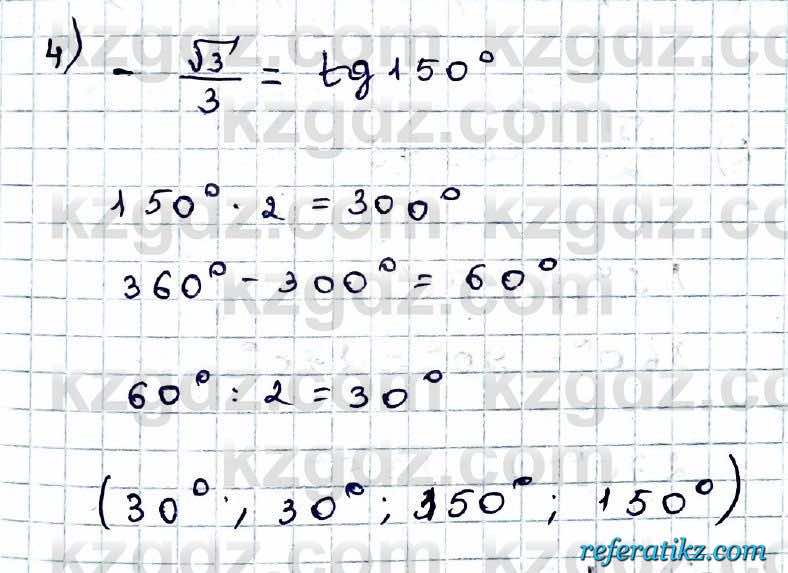 4) - √3/3 = tg 150°
150° · 2 = 300°
360° - 300° = 60°
60° : 2 = 30°
(30°; 30°; 150°; 150°)
kzgdz.com
referatikz.com